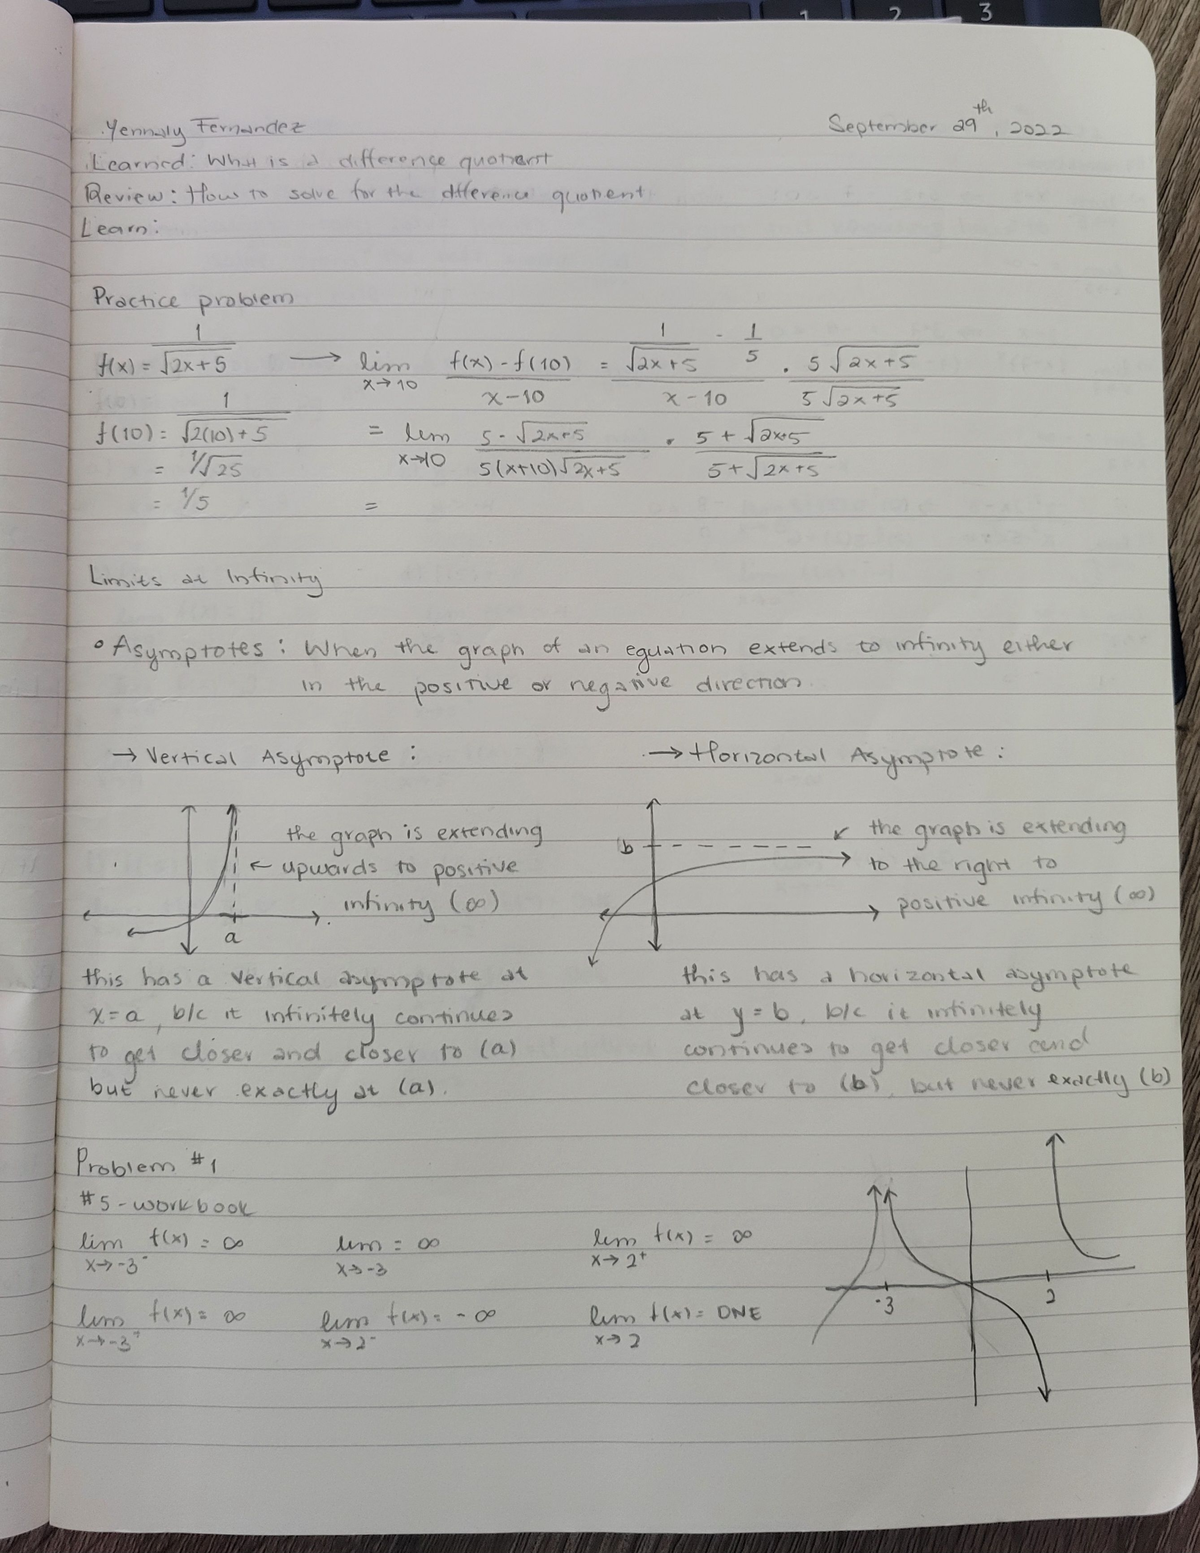 1 2 3
Yennaly Fernandez
September 29th, 2022
Learned: What is a difference quotient
Review: How to solve for the difference quotient
Learn:
Practice problem
f(x) = 1/√2x+5 → lim x→10 f(x) - f(10) / x-10 = 1/√2x+5 - 1/5 / x-10 · 5√2x+5 / 5√2x+5
f(10) = 1/√2(10)+5 = lim x→10 5-√2x+5 / 5(x+10)√2x+5 · 5+√2x+5 / 5+√2x+5
= 1/√25
= 1/5 =
Limits at Infinity
• Asymptotes: When the graph of an equation extends to infinity either
in the positive or negative direction.
→ Vertical Asymptote:
the graph is extending
← upwards to positive
infinity (∞)
a
this has a vertical asymptote at
x=a, b/c it infinitely continues
to get closer and closer to (a)
but never exactly at (a).
→ Horizontal Asymptote:
b
↙ the graph is extending
to the right to
positive infinity (∞)
this has a horizontal asymptote
at y=b, b/c it infinitely
continues to get closer and
closer to (b), but never exactly (b)
Problem #1
#5-workbook
lim x→-3⁻ f(x) = ∞ lim x→-3 = ∞ lim x→2⁺ f(x) = ∞
lim x→-3⁺ f(x) = ∞ lim x→2⁻ f(x) = -∞ lim x→2 f(x) = DNE
-3 2